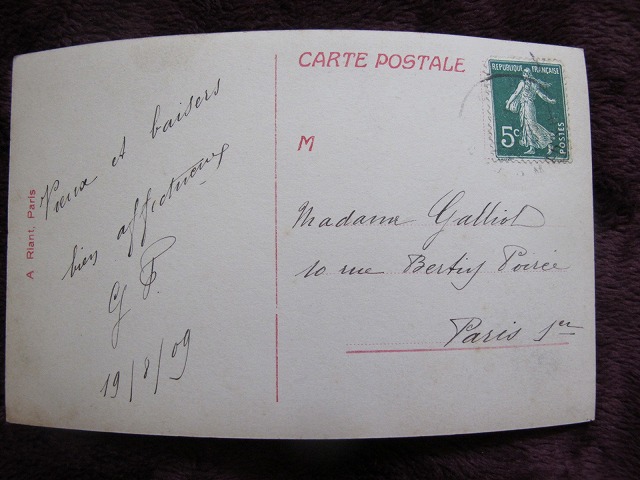 CARTE POSTALE
REPUBLIQUE FRANÇAISE
5c
POSTES
M
A Riant, Paris
Vœux et baisers
bien affectueux
G P.
19/8/09
Madame Galliot
10 rue Bertin Poirée
Paris 1er